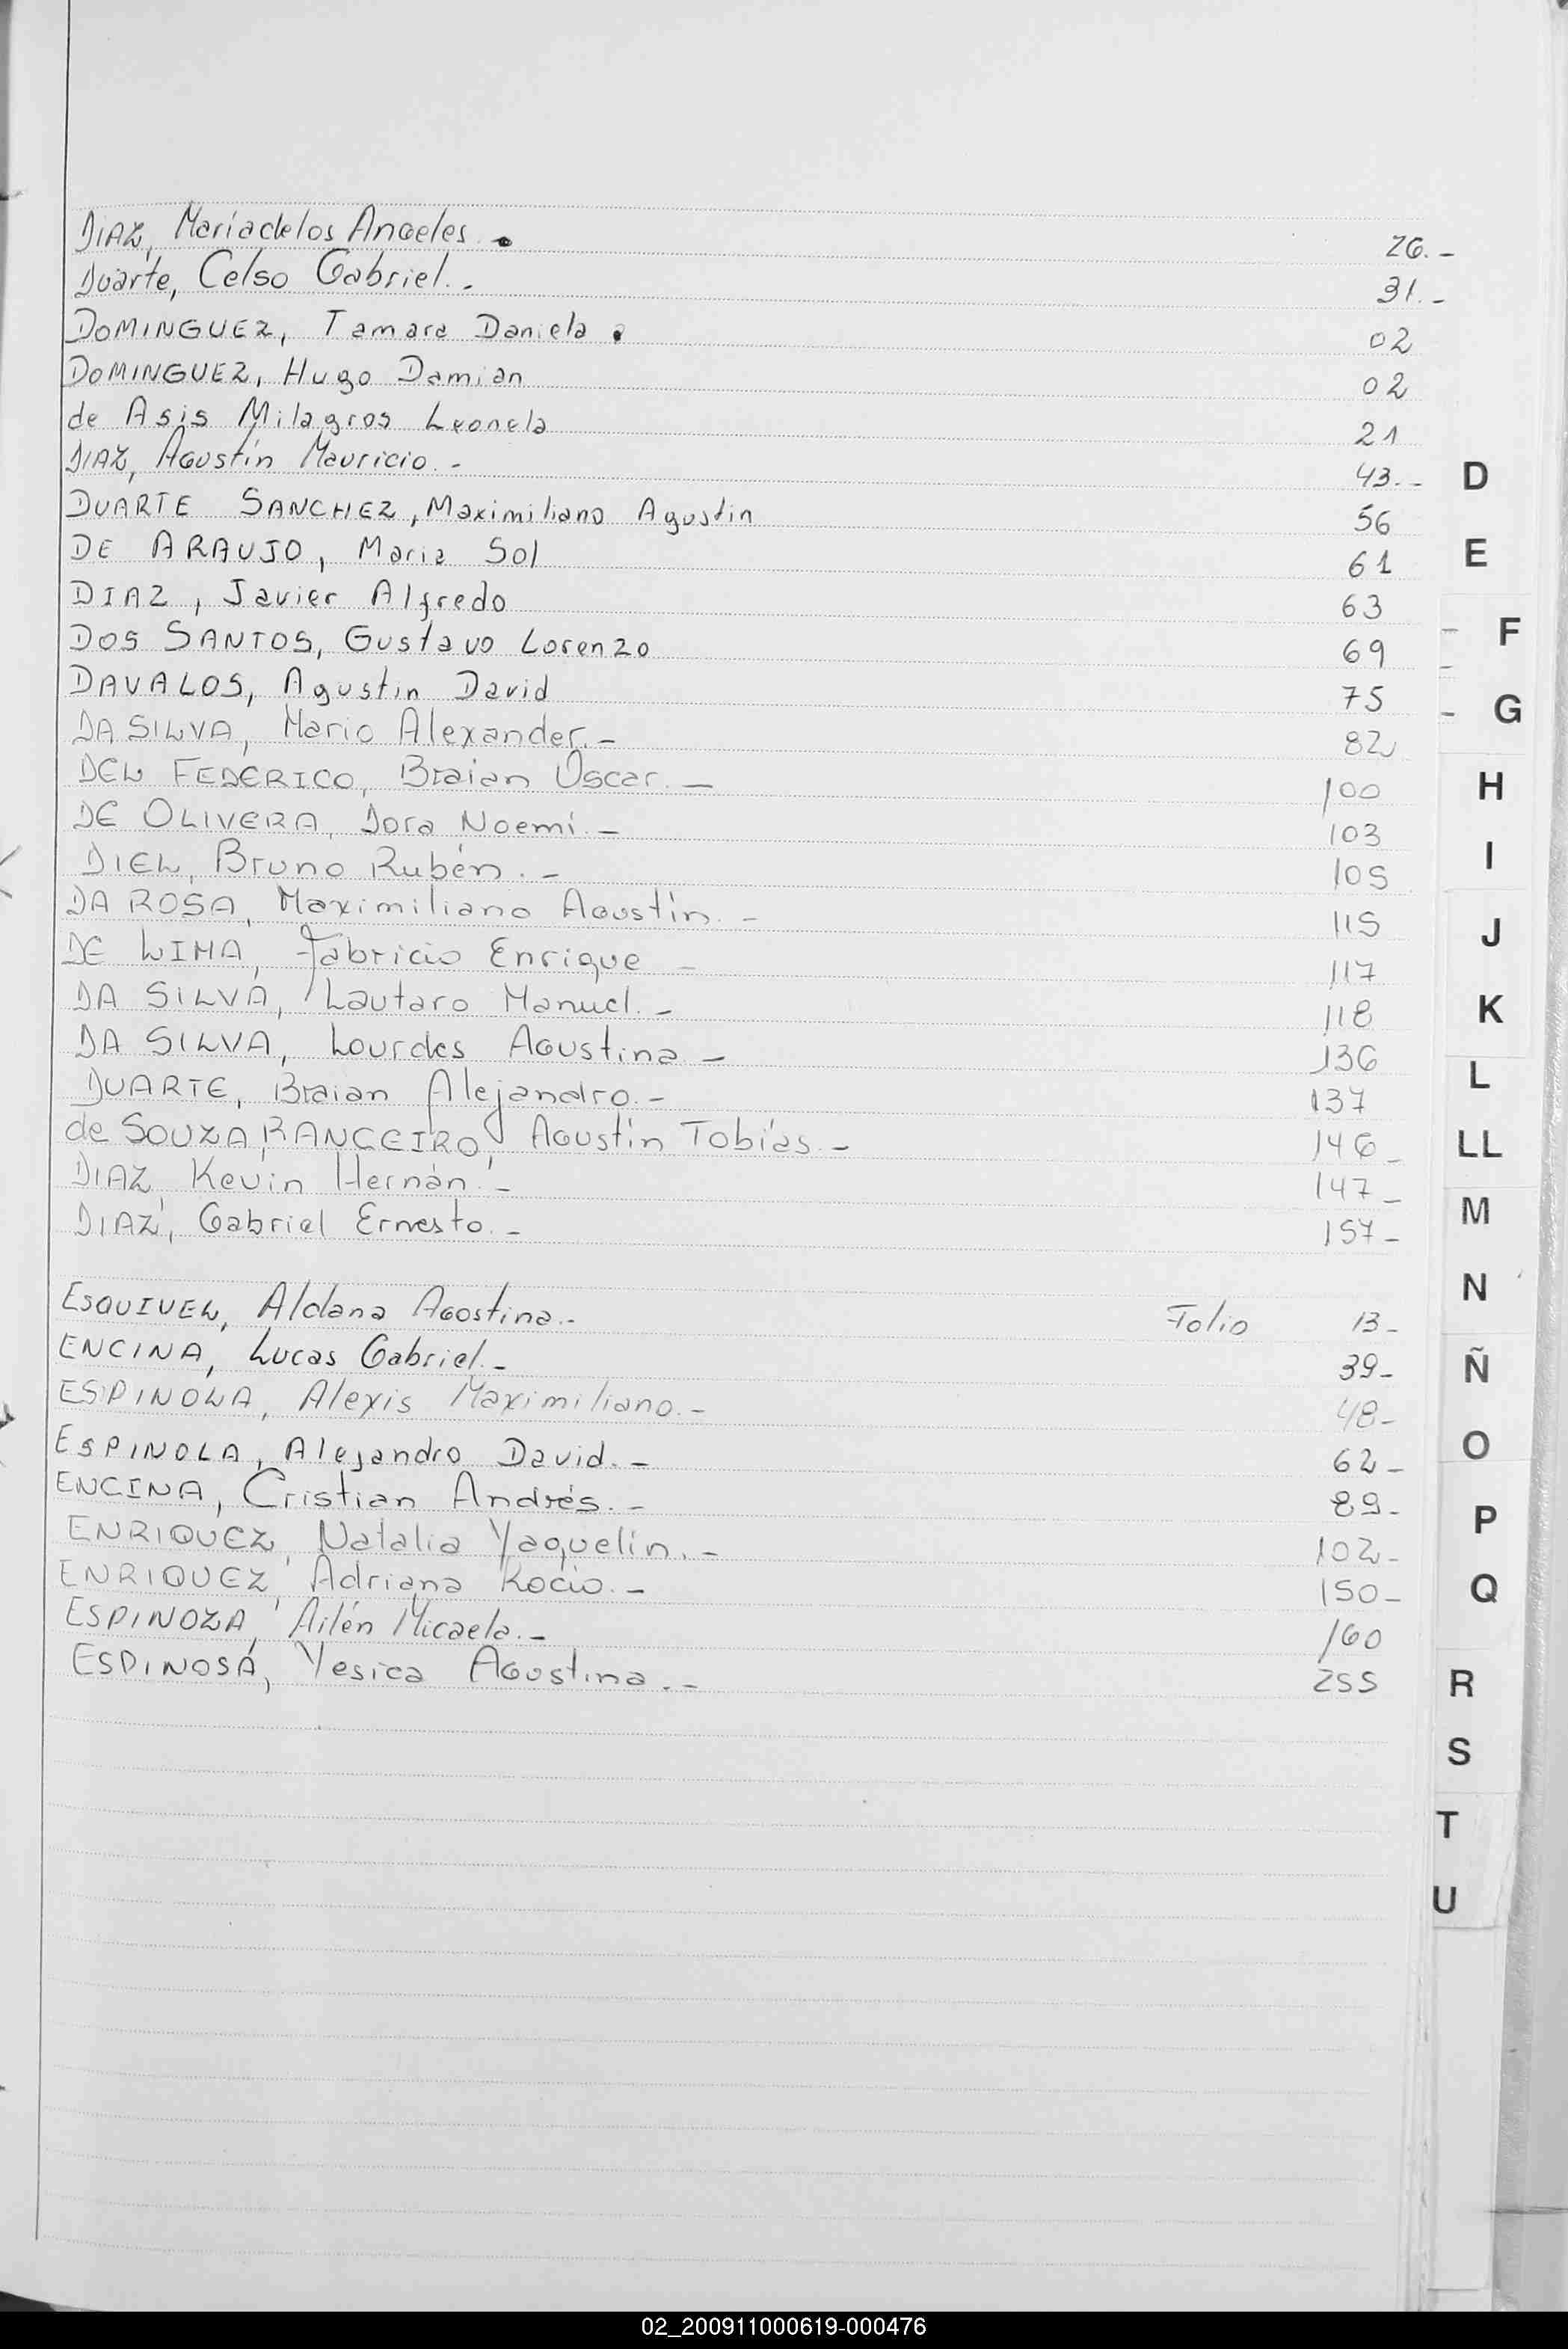 DIAZ, María de los Angeles. 26.-
Duarte, Celso Gabriel.- 31.-
DOMINGUEZ, Tamara Daniela. 02
DOMINGUEZ, Hugo Damian 02
de Asis Milagros Leonela 21
DIAZ, Agustín Mauricio.- 43.-
DUARTE SANCHEZ, Maximiliano Agustin 56
DE ARAUJO, Maria Sol 61
DIAZ, Javier Alfredo 63
DOS SANTOS, Gustavo Lorenzo 69
DAVALOS, Agustin David 75
DA SILVA, Mario Alexander.- 82
DEL FEDERICO, Braian Oscar.- 100
DE OLIVERA, Dora Noemí.- 103
DIEL, Bruno Rubén.- 105
DA ROSA, Maximiliano Agustín.- 115
DE LIMA, Fabricio Enrique - 117
DA SILVA, Lautaro Manuel.- 118
DA SILVA, Lourdes Agustina - 136
DUARTE, Braian Alejandro.- 137
de SOUZA, Agustín Tobías.- 146-
DIAZ, Kevin Hernán.- 147-
DIAZ, Gabriel Ernesto.- 157-
ESQUIVEL, Aldana Agostina.- Folio 13-
ENCINA, Lucas Gabriel.- 39-
ESPINOLA, Alexis Maximiliano.- 48-
ESPINOLA, Alejandro David.- 62-
ENCINA, Cristian Andrés.- 89-
ENRIQUEZ, Natalia Yaquelín.- 102-
ENRIQUEZ, Adriana Rocío.- 150-
ESPINOZA, Ailén Micaela.- 160
ESPINOSA, Yesica Agustina.- 255
D
E
F
G
H
I
J
K
L
LL
M
N
Ñ
O
P
Q
R
S
T
U
02_200911000619-000476